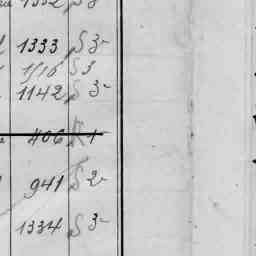 1332 S 3-
1333 S 3-
1/16 S 3
1142 S 3-
406 R 1
941 S 2-
1334 S 3-